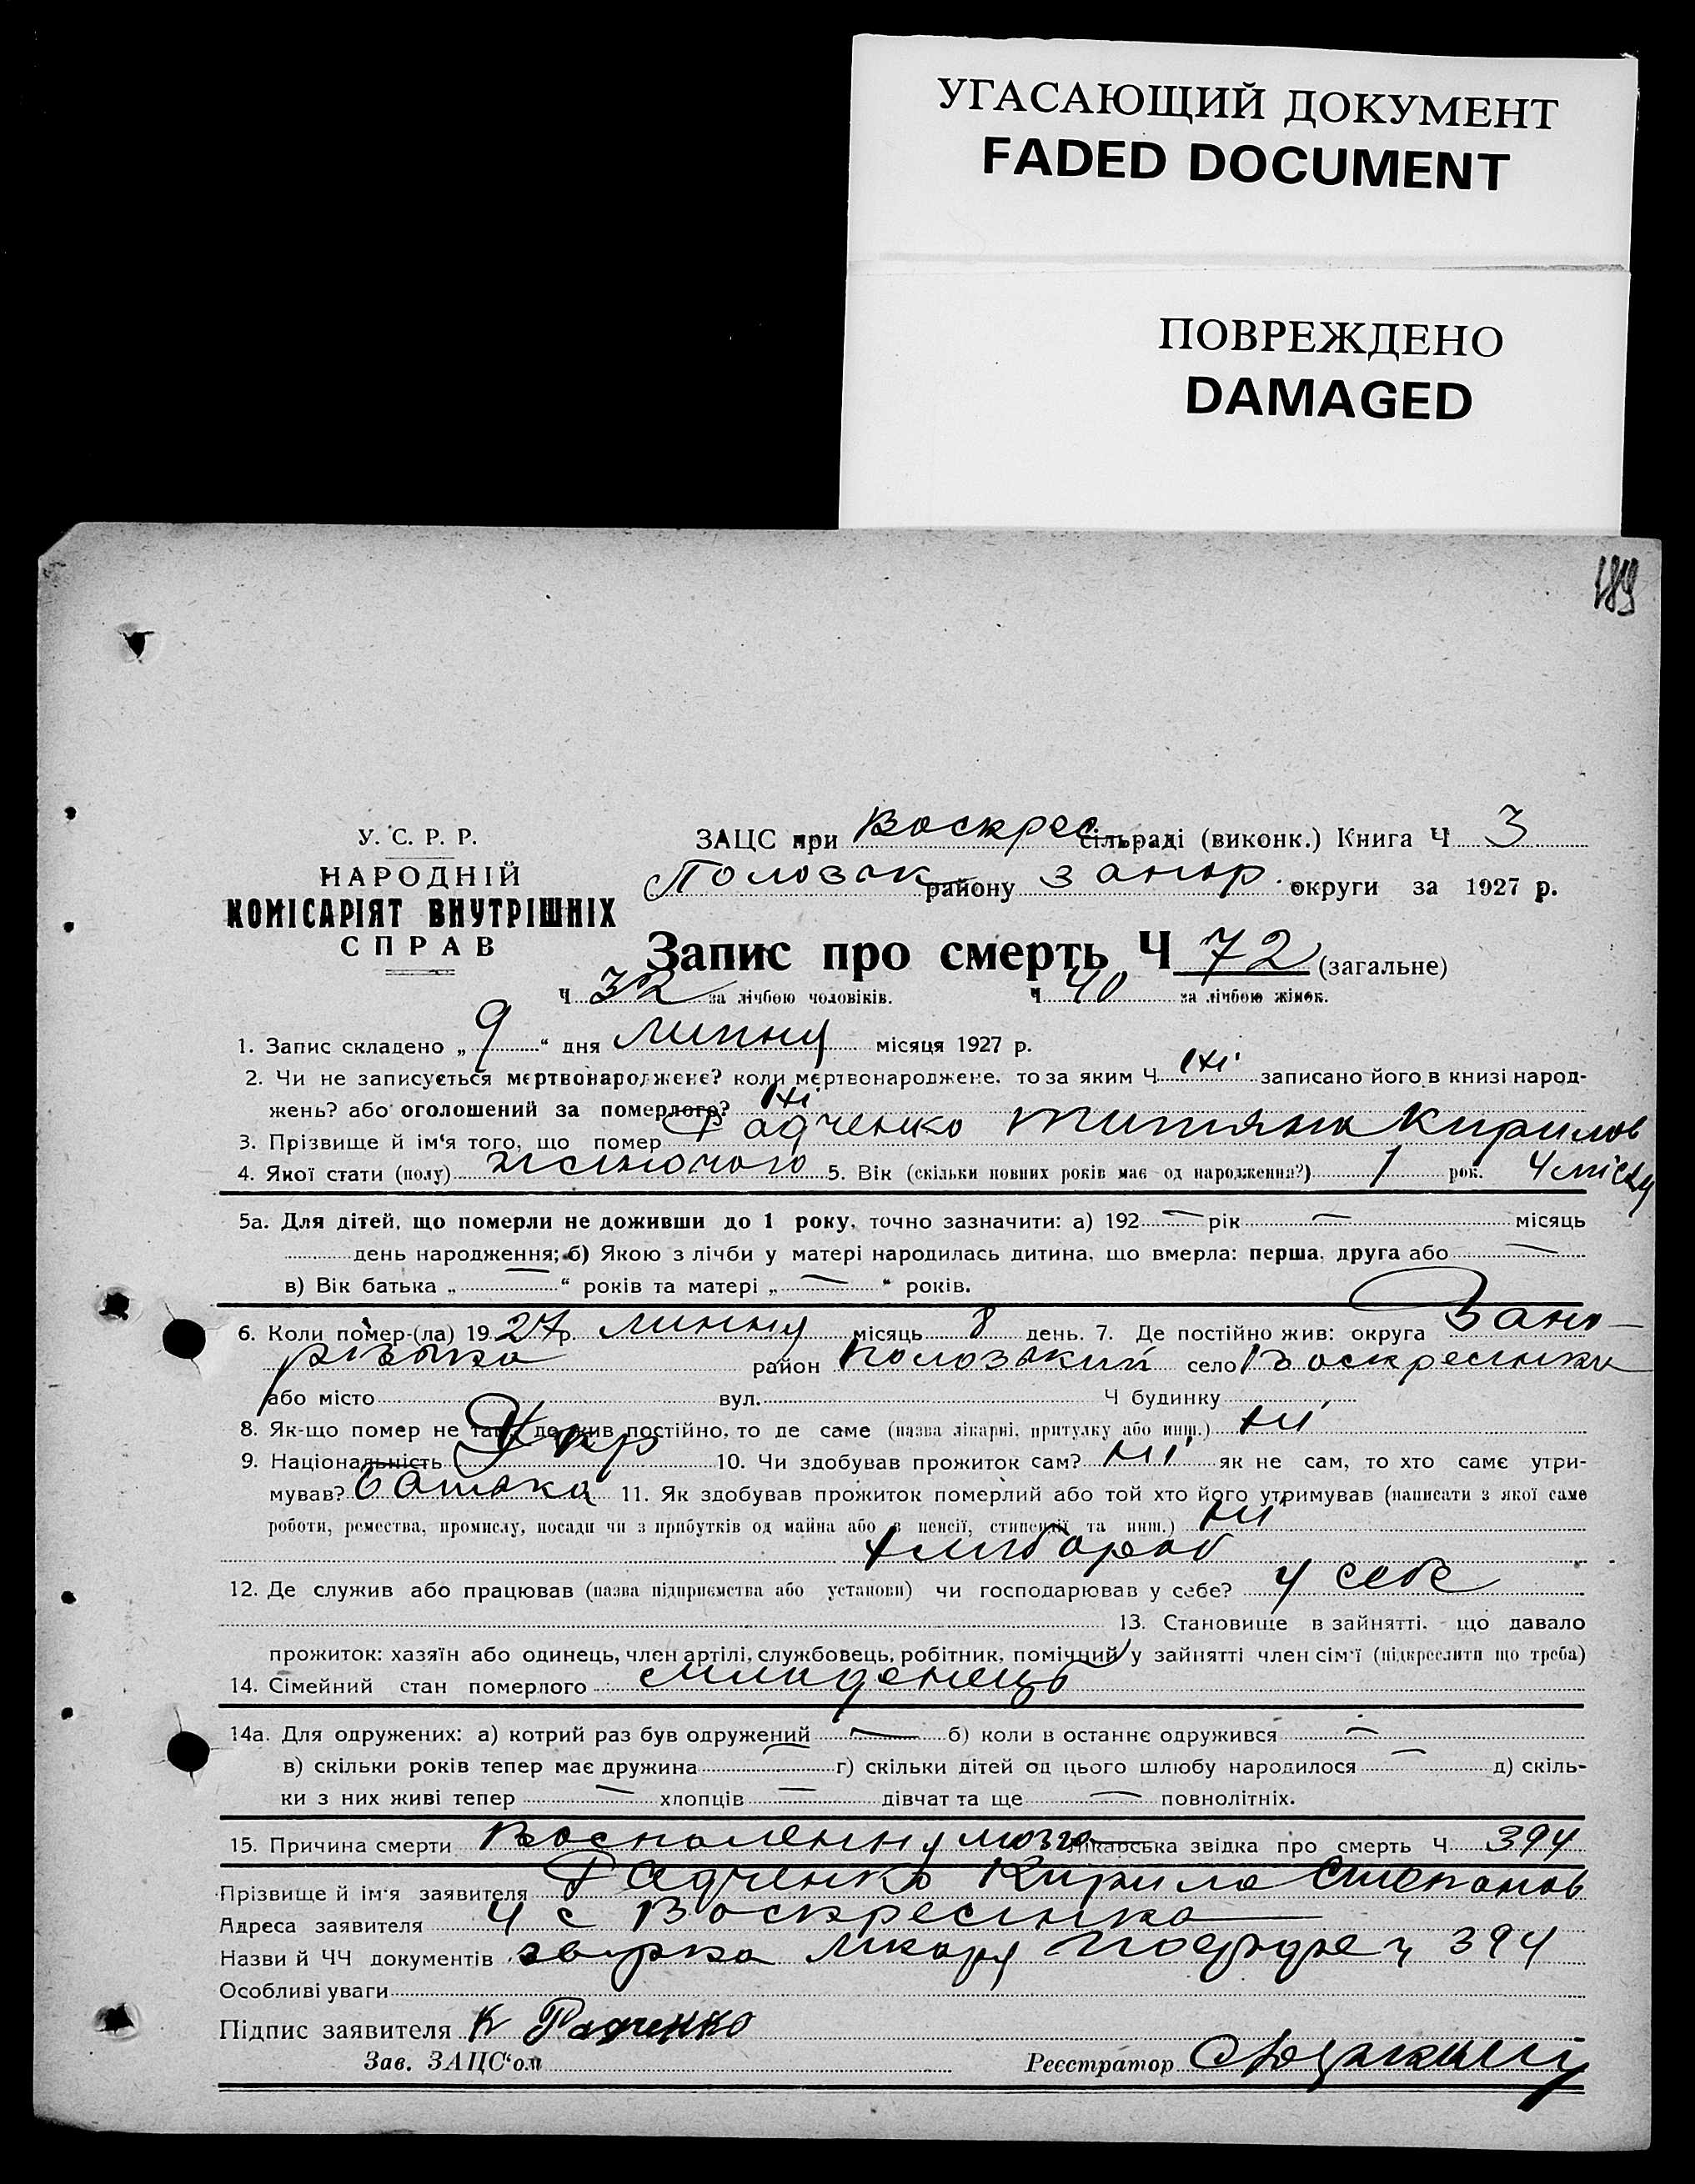 УГАСАЮЩИЙ ДОКУМЕНТ
FADED DOCUMENT
ПОВРЕЖДЕНО
DAMAGED
189
У. С. Р. Р.
НАРОДНІЙ
КОМІСАРІЯТ ВНУТРІШНІХ
СПРАВ
ЗАЦС при Воскрес сільраді (виконк.) Книга Ч 3
Полозьк району Запор. округи за 1927 р.
Запис про смерть Ч 72 (загальне)
Ч 32 за лічбою чоловіків. Ч 40 за лічбою жінок.
1. Запис складено „9“ дня липня місяця 1927 р.
2. Чи не записується мертвонароджене? коли мертвонароджене, то за яким Ч ні записано його в книзі народ-
жень? або оголошений за померлого? ні
3. Прізвище й ім'я того, що помер Радченко Титяна Кирилов
4. Якої стати (полу) жіночого 5. Вік (скільки повних років має од народження?) 1 рок. 4 місяц
5а. Для дітей, що померли не доживши до 1 року, точно зазначити: а) 192 — рік — місяць
день народження; б) Якою з лічби у матері народилась дитина, що вмерла: перша, друга або —
в) Вік батька „—“ років та матері „—“ років.
6. Коли помер-(ла) 1927 р. липня місяць 8 день. 7. Де постійно жив: округа Запо-
різька район Полозький село Воскресінка
або місто вул. Ч будинку
8. Як-що помер не там, де жив постійно, то де саме (назва лікарні, притулку або инш.) ні
9. Національність Укр 10. Чи здобував прожиток сам? ні як не сам, то хто саме утри-
мував? батька 11. Як здобував прожиток померлий або той хто його утримував (написати з якої саме
роботи, ремества, промислу, посади чи з прибутків од майна або з пенсії, стипендії та инш.) ні
хлібороб
12. Де служив або працював (назва підприємства або установи) чи господарював у себе? у себе
13. Становище в зайнятті, що давало
прожиток: хазяїн або одинець, член артілі, службовець, робітник, помічний у зайнятті член сім'ї (підкреслити що треба)
14. Сімейний стан померлого младенець
14а. Для одружених: а) котрий раз був одружений — б) коли в останнє одружився —
в) скільки років тепер має дружина — г) скільки дітей од цього шлюбу народилося — д) скіль-
ки з них живі тепер — хлопців — дівчат та ще — повнолітніх.
15. Причина смерти Воспаления мозга лікарська звідка про смерть Ч 394
Прізвище й ім'я заявителя Радченко Кирило Степанов
Адреса заявителя у с Воскресінка
Назви й ЧЧ документів лікаря 394
Особливі уваги
Підпис заявителя К Радченко
Зав. ЗАЦС'ом Реєстратор